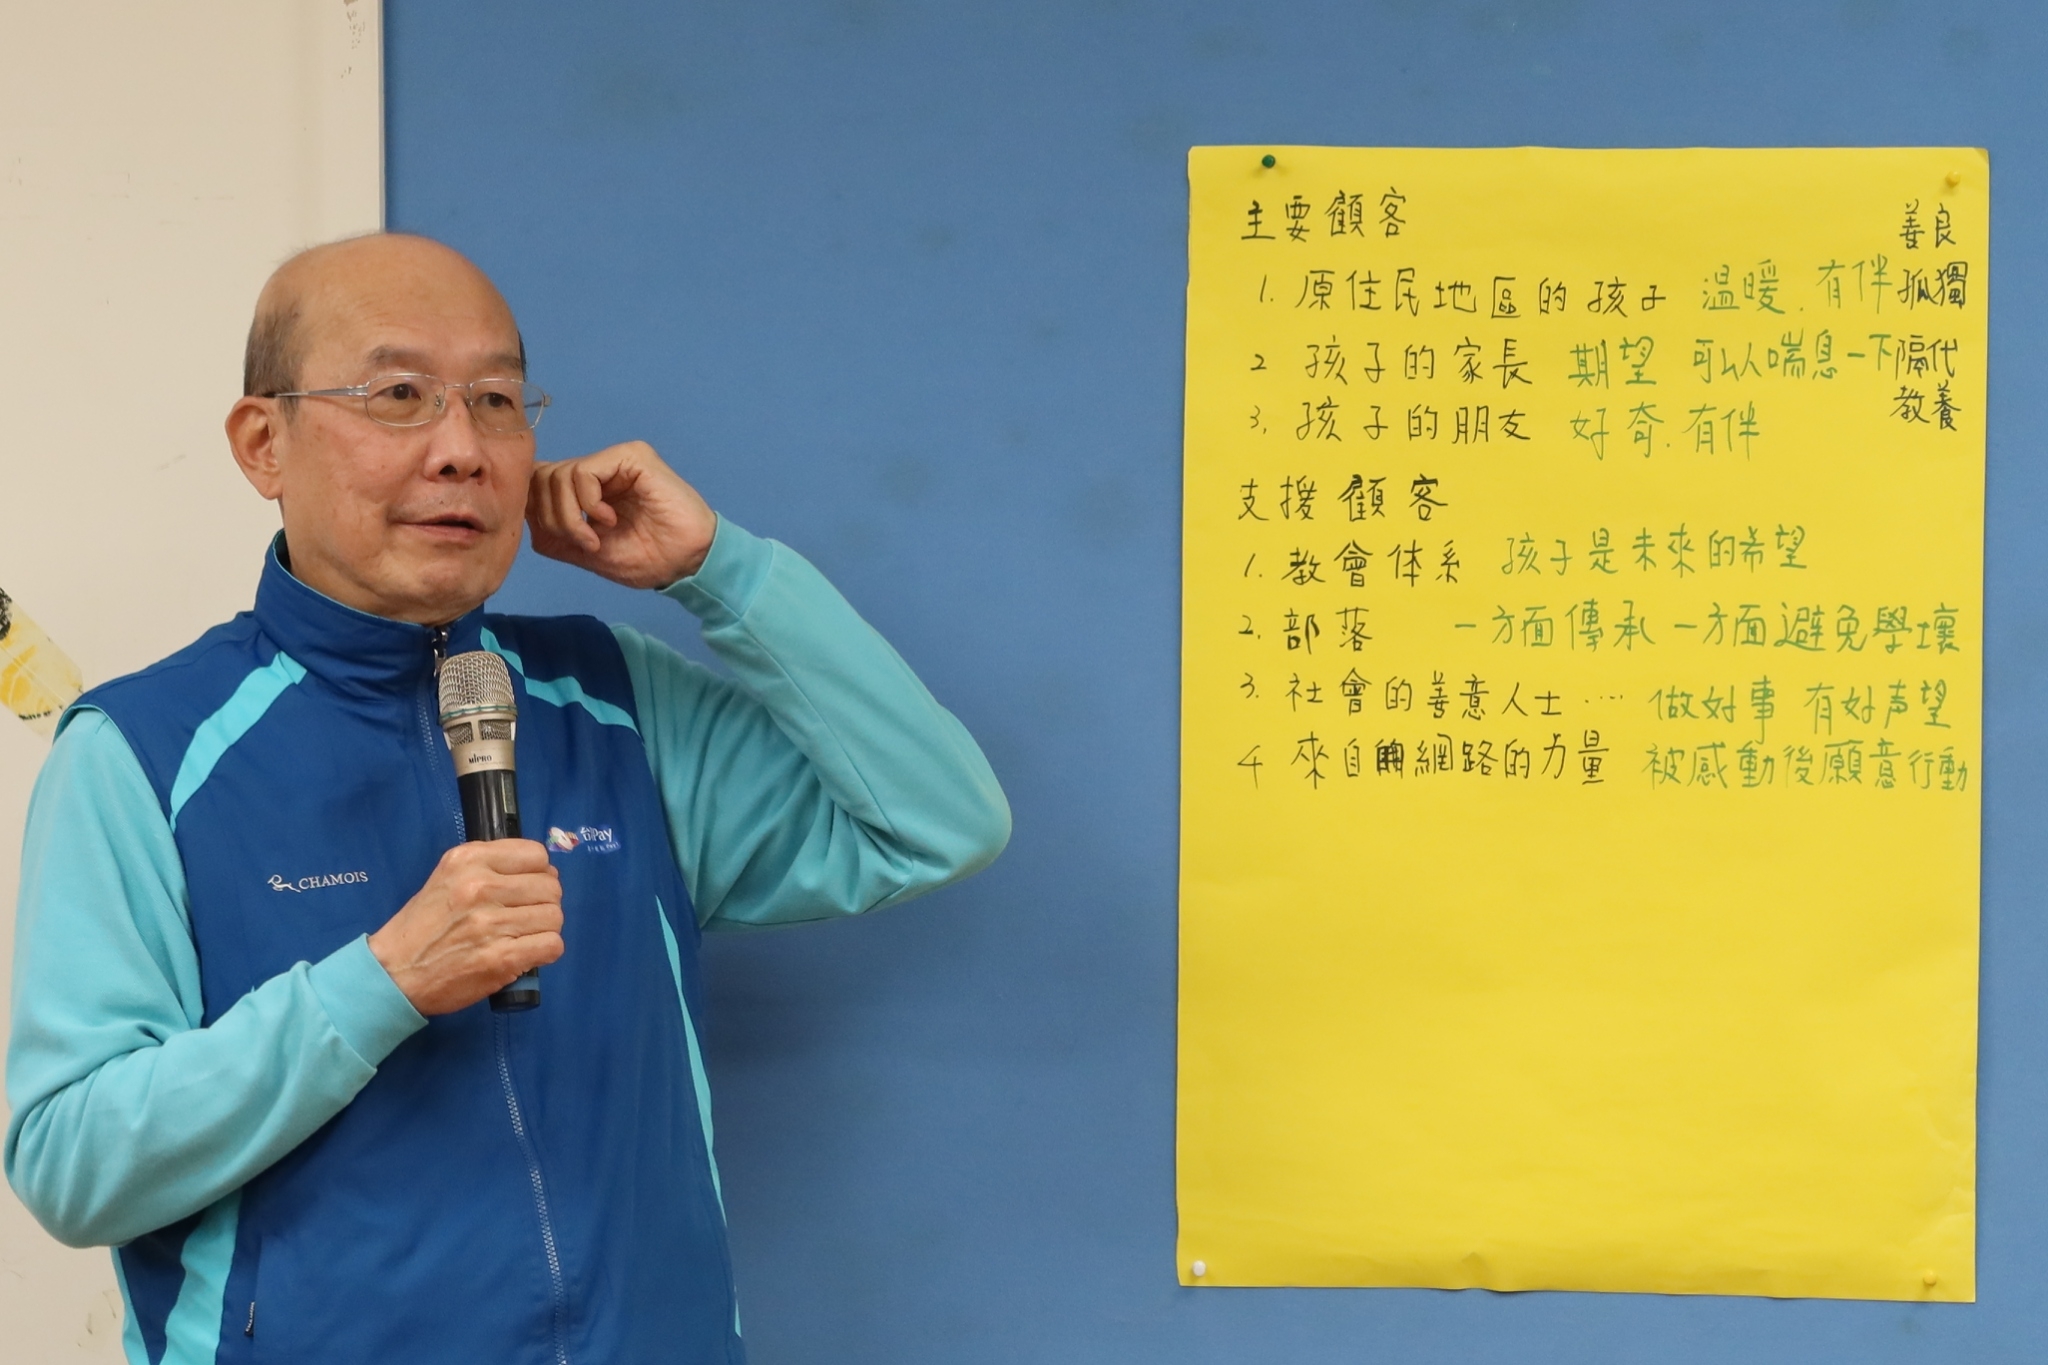 主要顧客
善良
1. 原住民地區的孩子 溫暖.有伴
孤獨
2 孩子的家長 期望 可以喘息一下
隔代
教養
3. 孩子的朋友 好奇.有伴
支援顧客
1. 教會体系 孩子是未來的希望
2. 部落 一方面傳承 一方面避免學壞
3. 社會的善意人士‥‥ 做好事 有好声望
4 來自網路的力量 被感動後願意行動
MIPRO
CHAMOIS
Pay